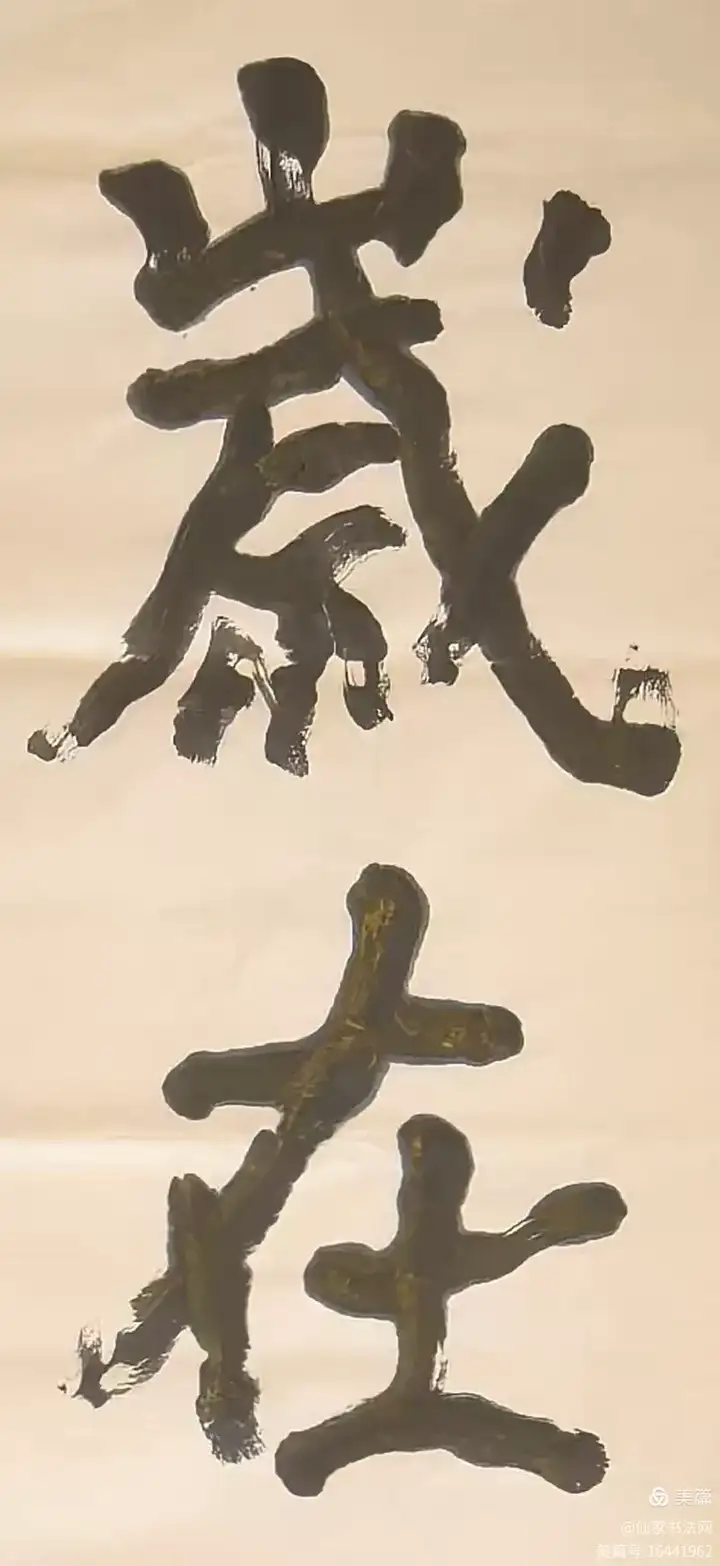 歲在
美篇
@仙家书法网
美篇号 16441962